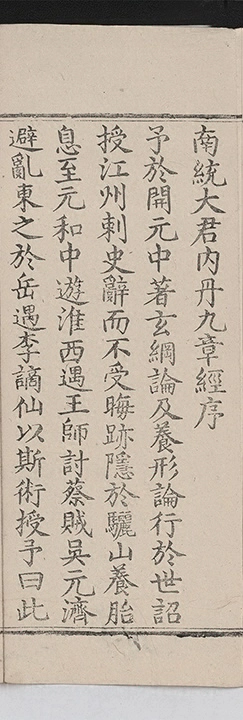 南統大君內丹九章經序
予於開元中著玄綱論及養形論行於世詔
授江州刺史辭而不受晦跡隱於驪山養胎
息至元和中遊淮西遇王師討蔡賊吳元濟
避亂東之於岳遇李謫仙以斯術授予曰此